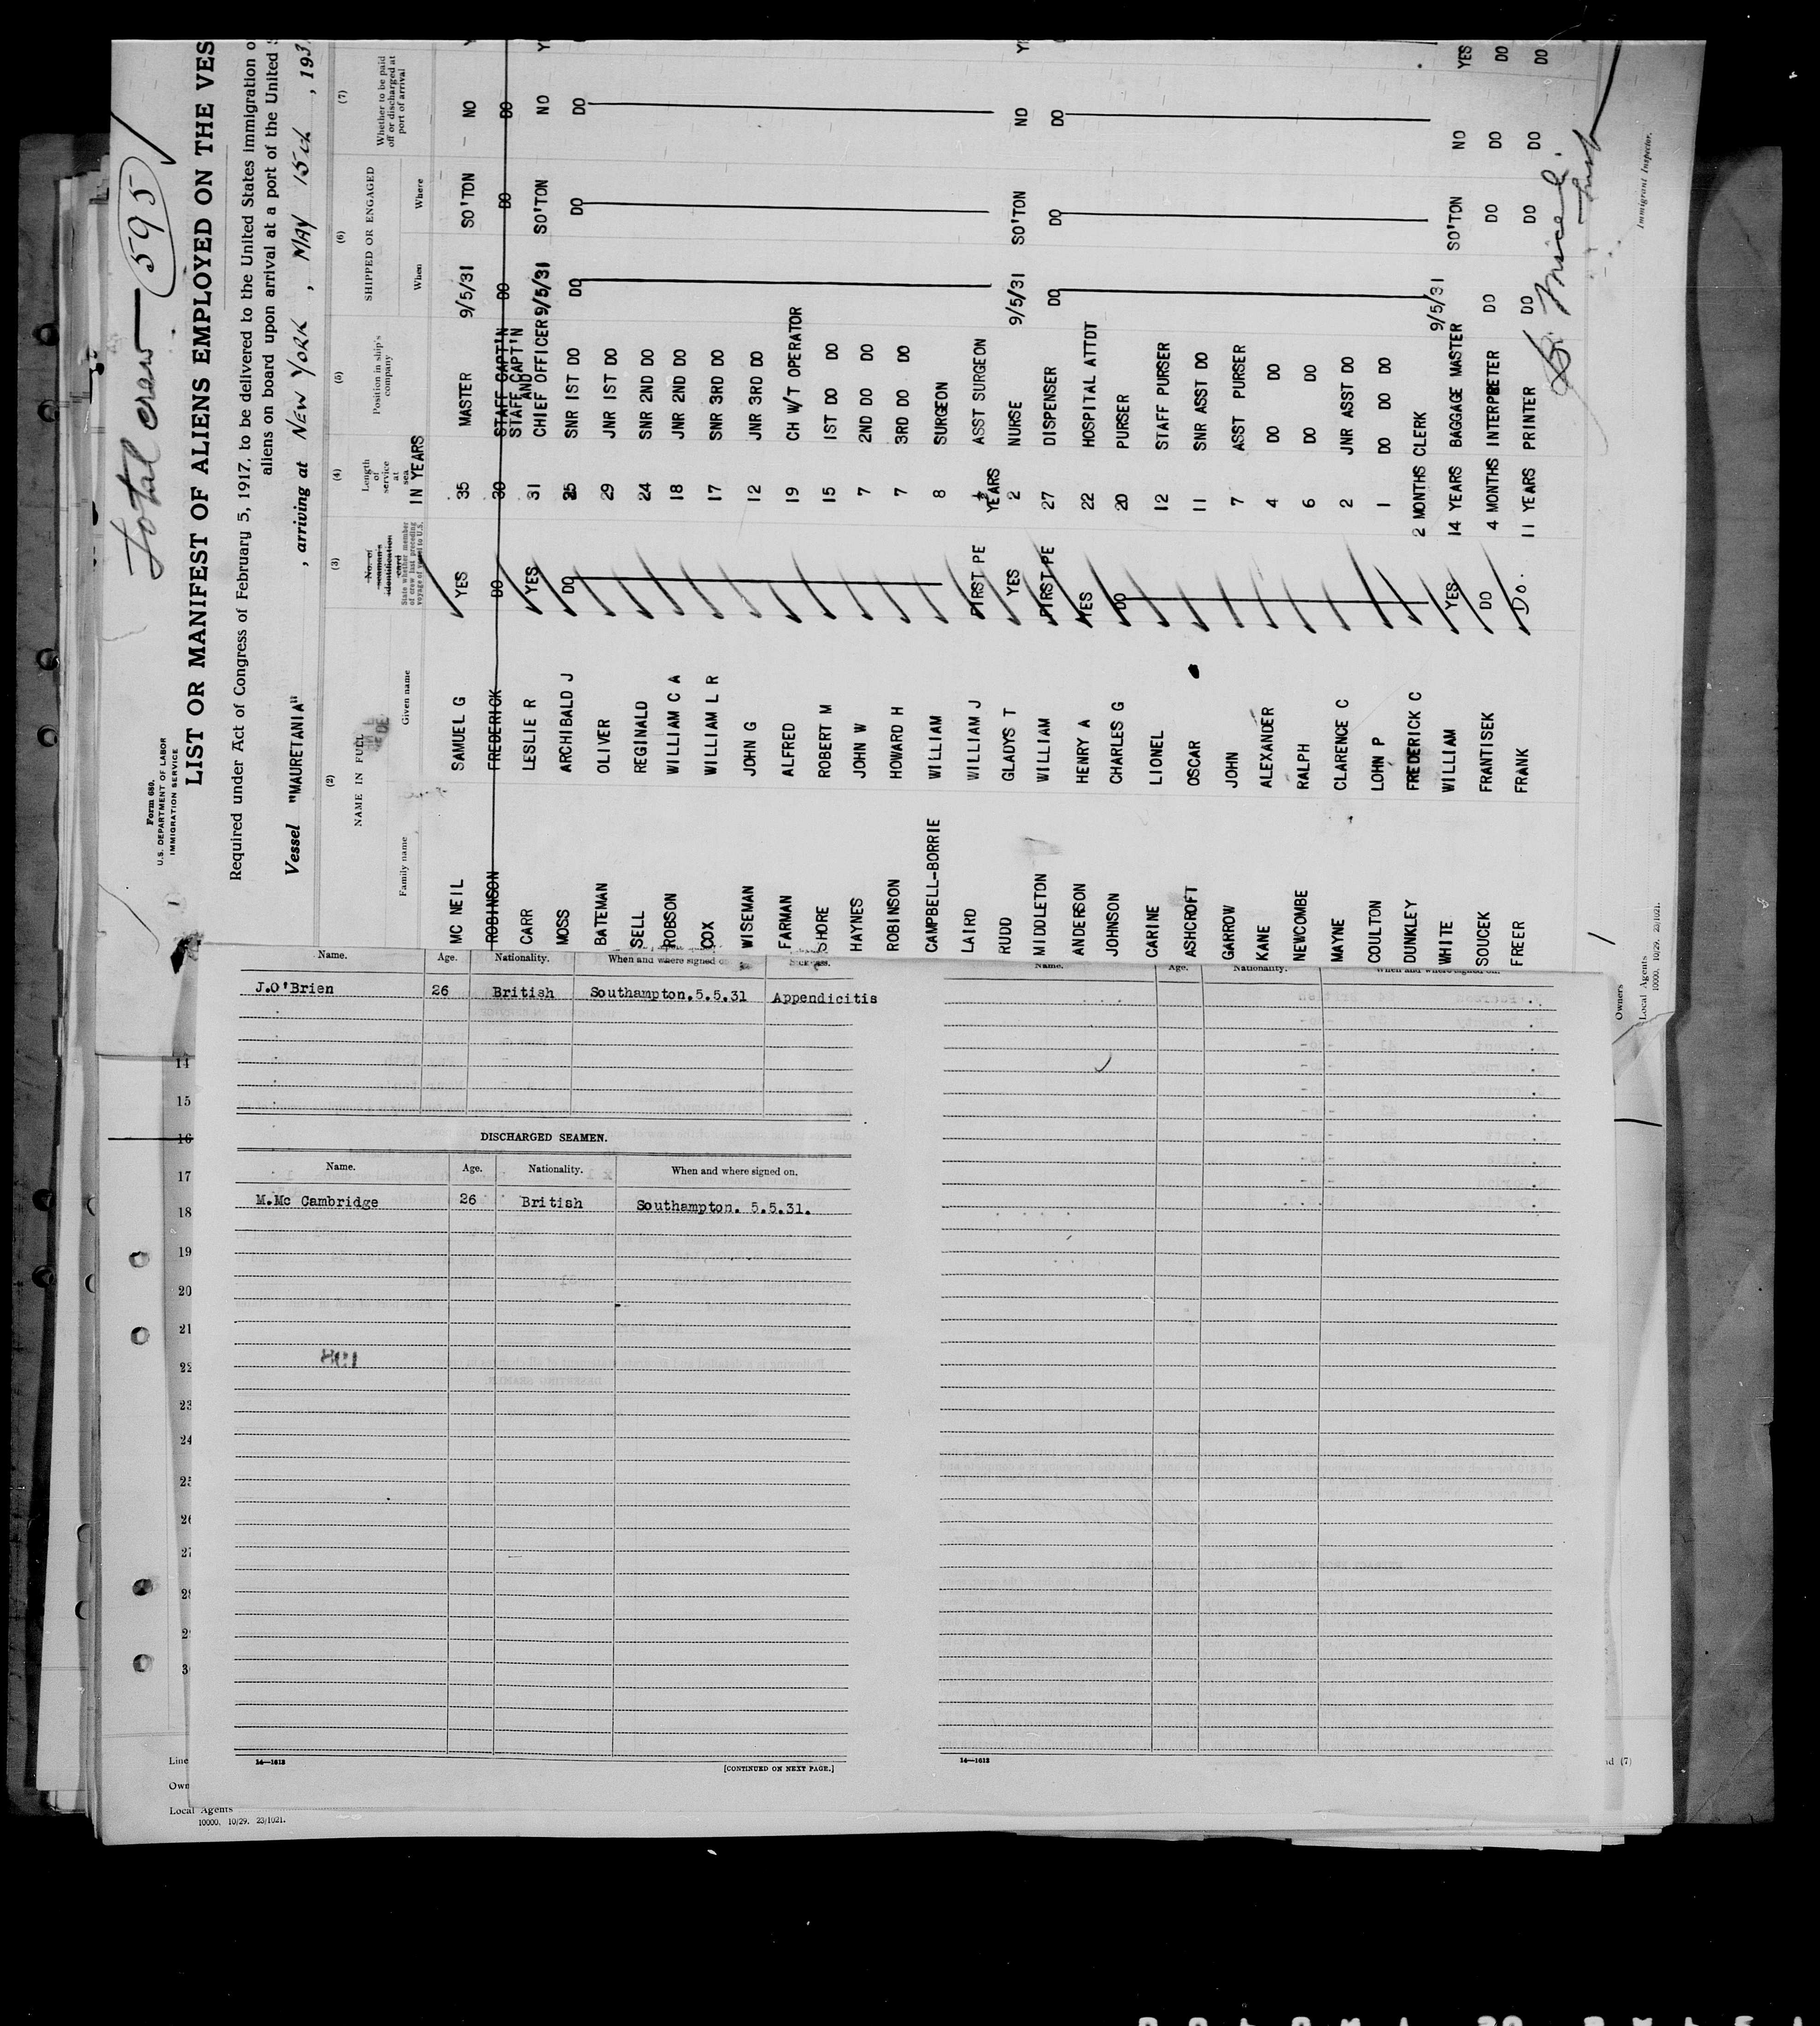 Total crew — 595
Form 689.
U.S. DEPARTMENT OF LABOR
IMMIGRATION SERVICE
LIST OR MANIFEST OF ALIENS EMPLOYED ON THE VES
Required under Act of Congress of February 5, 1917, to be delivered to the United States immigration o
aliens on board upon arrival at a port of the United S
Vessel "MAURETANIA" , arriving at NEW YORK , MAY 15th , 193
(2) (3) (4) (5) (6) (7)
NAME IN FULL
Family name Given name
No. of seaman's identification card
State whether member of crew last preceding voyage of vessel to U.S.
Length of service at sea
IN YEARS
Position in ship's company
SHIPPED OR ENGAGED
When Where
Whether to be paid off or discharged at port of arrival
MC NEIL SAMUEL G YES 35 MASTER 9/5/31 SO'TON — NO
ROBINSON FREDERICK DO 30 STAFF CAPT'N DO DO DO
STAFF CAPT'N
AND
CARR LESLIE R YES 31 CHIEF OFFICER 9/5/31 SO'TON NO
MOSS ARCHIBALD J DO 25 SNR 1ST DO DO DO DO
BATEMAN OLIVER 29 JNR 1ST DO
SELL REGINALD 24 SNR 2ND DO
ROBSON WILLIAM C A 18 JNR 2ND DO
COX WILLIAM L R 17 SNR 3RD DO
WISEMAN JOHN G 12 JNR 3RD DO
FARMAN ALFRED 19 CH W/T OPERATOR
SHORE ROBERT M 15 1ST DO DO
HAYNES JOHN W 7 2ND DO DO
ROBINSON HOWARD H 7 3RD DO DO
CAMPBELL-BORRIE WILLIAM 8 SURGEON
LAIRD WILLIAM J FIRST PE ½ YEARS ASST SURGEON
RUDD GLADYS T YES 2 NURSE 9/5/31 SO'TON NO
MIDDLETON WILLIAM FIRST PE 27 DISPENSER DO DO DO
ANDERSON HENRY A YES 22 HOSPITAL ATTDT
JOHNSON CHARLES G DO 20 PURSER
CARINE LIONEL 12 STAFF PURSER
ASHCROFT OSCAR 11 SNR ASST DO
GARROW JOHN 7 ASST PURSER
KANE ALEXANDER 4 DO DO
NEWCOMBE RALPH 6 DO DO
MAYNE CLARENCE C 2 JNR ASST DO
COULTON LOHN P 1 DO DO DO
DUNKLEY FREDERICK C 2 MONTHS CLERK
WHITE WILLIAM YES 14 YEARS BAGGAGE MASTER 9/5/31 SO'TON NO YES
SOUCEK FRANTISEK DO 4 MONTHS INTERPRETER DO DO DO DO
FREER FRANK Do. 11 YEARS PRINTER DO DO DO DO
Immigrant Inspector.
Owners
Local Agents
10000. 10/29. 23/1021.
Name. Age. Nationality. When and where signed o
J.O'Brien 26 British Southampton.5.5.31 Appendicitis
DISCHARGED SEAMEN.
Name. Age. Nationality. When and where signed on.
M.Mc Cambridge 26 British Southampton. 5.5.31.
14—1613
[CONTINUED ON NEXT PAGE.]
Name. Age. Nationality. When and where signed on.
14—1613
14
15
16
17
18
19
20
21
22
23
24
25
Line
Own
Local Agents
10000. 10/29. 23/1021.
nd (7)